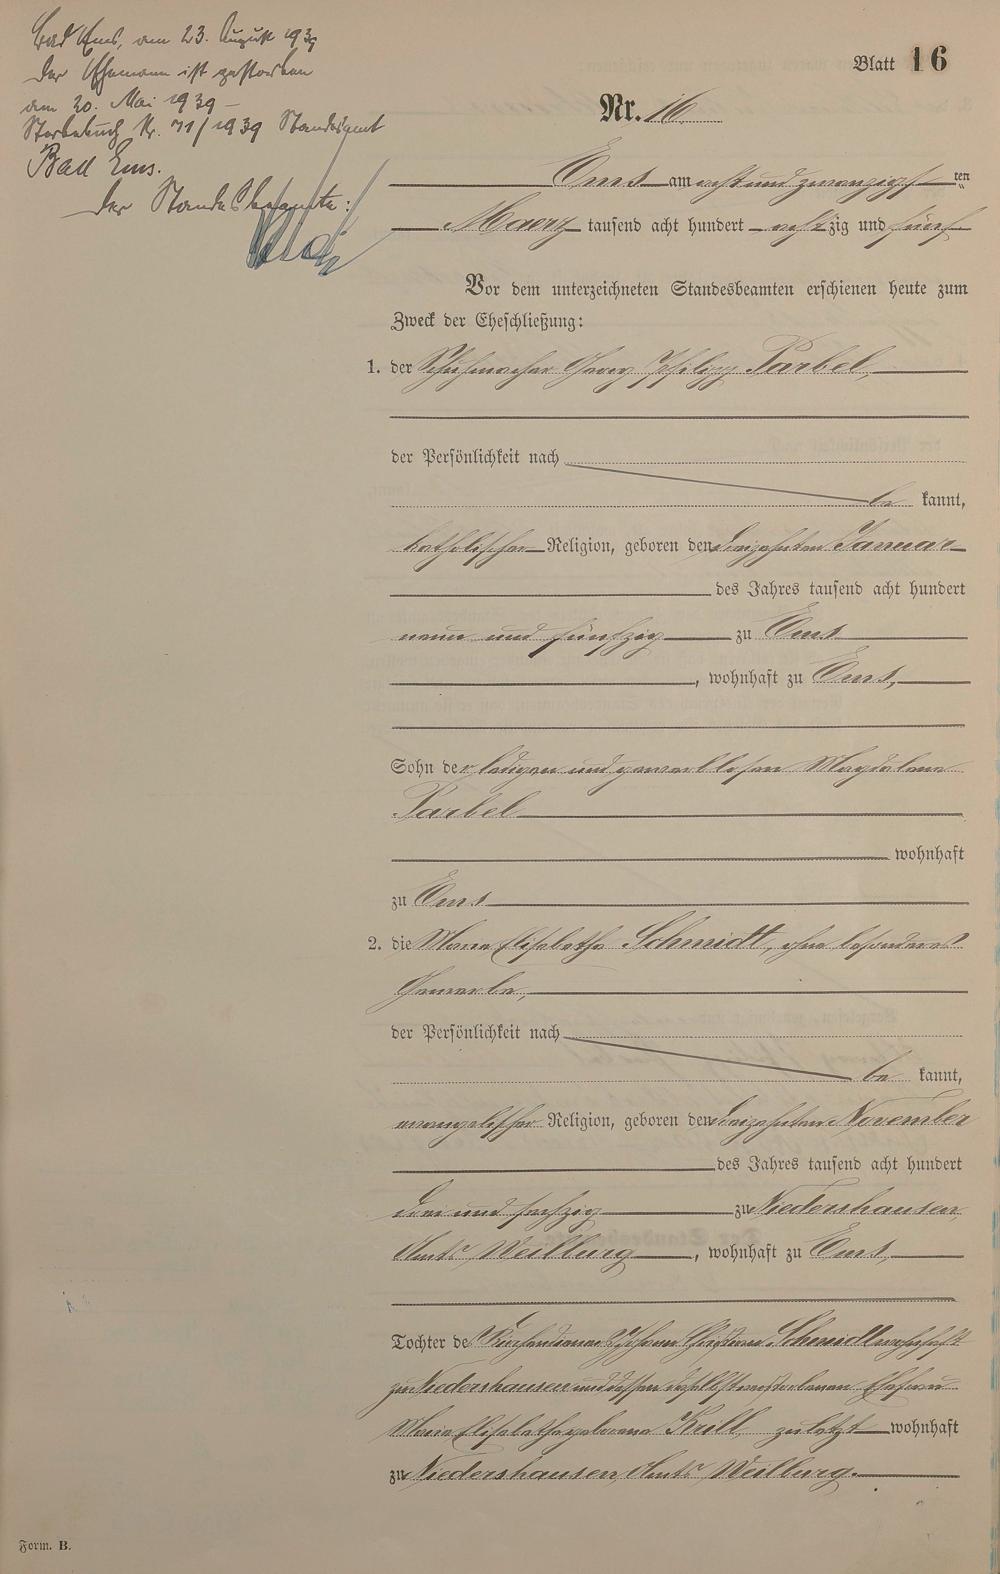 Bad Ems, am 23. August 1939
Der Ehemann ist gestorben
am 20. Mai 1939 –
Sterbebuch Nr. 71/1939 Standesamt
Bad Ems.
Der Standesbeamte:
Blatt 16
Nr. 16.
Ems am acht und zwanzigsten
Maerz tausend acht hundert achtzig und fünf
Vor dem unterzeichneten Standesbeamten erschienen heute zum
Zweck der Eheschließung:
1. der Schuhmacher Georg Philipp Parbel,
der Persönlichkeit nach
be kannt,
katholischer Religion, geboren den dreizehnten Januar
des Jahres tausend acht hundert
neun und fünfzig zu Ems
, wohnhaft zu Ems,
Sohn der ledigen und gewerblosen Magdalena
Parbel
wohnhaft
zu Ems
2. die Maria Elisabetha Schmidt, ohne besonderes
Gewerbe,
der Persönlichkeit nach
be kannt,
evangelischer Religion, geboren den dreizehnten November
des Jahres tausend acht hundert
drei und sechzig zu Niedershausen,
Amts Weilburg, wohnhaft zu Ems,
Tochter des Kirchendieners Johann Christian Schmidt wohnhaft
zu Niedershausen und dessen daselbst verstorbenen Ehefrau
Maria Elisabetha geborene Krill, zuletzt wohnhaft
zu Niedershausen, Amts Weilburg.
Form. B.